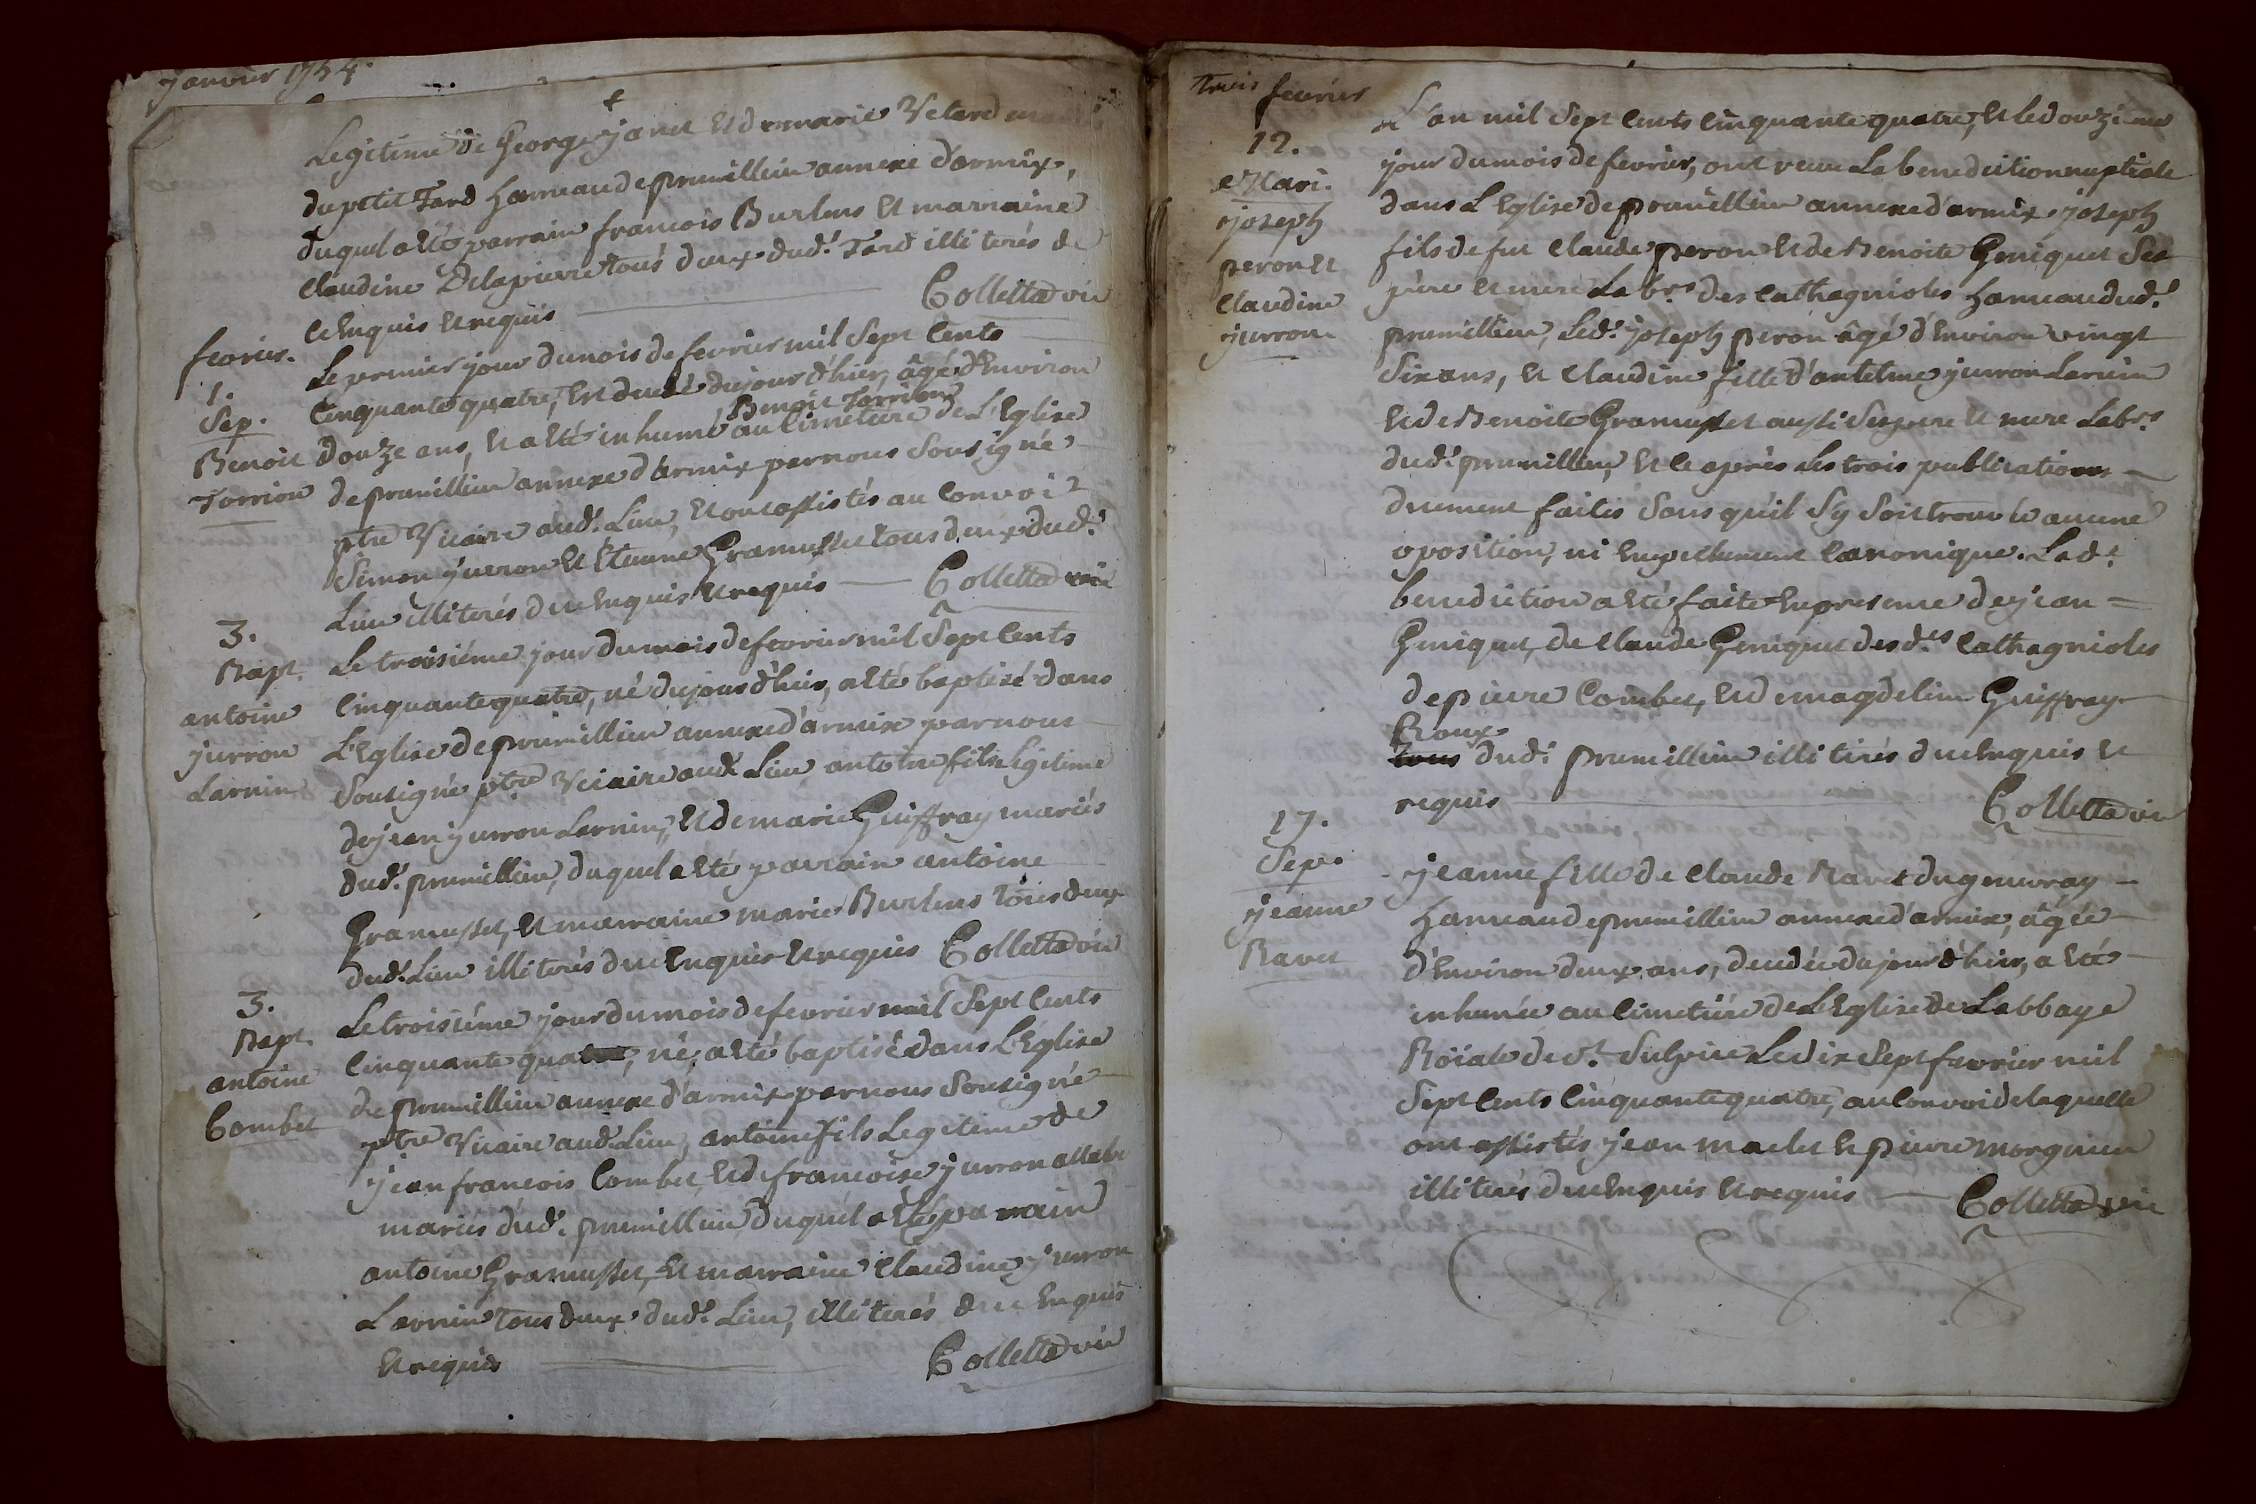 janvier 1754.
Legitime de George janet et de marie Vetard
du petit Tard hameau de prumillieu annexe d'armix,
duquel a été parrain francois Burlens et marraine
Claudine Delapierre tous deux dud.t Tard illiterés de
ce enquis et requis Colletta vic
fevrier.
1.
Sep.
Benoit
Torrion
Le premier jour du mois de fevrier mil Sept Cents
Cinquante quatre, est decedé dujourd'hier, âgé d'Environ
Benoit Torrion
douze ans, et a été inhumé au Cimetiere de L'Eglise
de prumillieu annexe d'armix par nous Sousigné
ptre Vicaire aud.t Lieu, et ont assistés au Convoi
Simon jurron et Etienne Gramusset tous deux dud.t
Lieu illiterés de ce enquis et requis Colletta vic
3.
Bapt.
antoine
jurron
Larnin
Le troisiéme jour du mois de fevrier mil Sept Cents
Cinquante quatre, né dujourd'hier, a été baptisé dans
L'Eglise de prumillieu annexe d'armix par nous
Sousigné ptre Vicaire aud.t Lieu antoine fils Legitime
de jean jurron Larnin, et de marie Guiffray mariés
dud.t prumillieu, duquel a été parrain antoine
Gramusset, et marraine marie Burlens tous deux
dud.t Lieu illiterés de ce enquis et requis Colletta vic
3.
Bapt.
antoine
Combet
Le troisiéme jour du mois de fevrier mil Sept Cents
Cinquante quatre, né, a été baptisé dans L'Eglise
de prumillieu annexe d'armix par nous Sousigné
ptre Vicaire aud.t Lieu, antoine fils Legitime de
jean francois Combet, et de francoise jurron
mariés dud.t prumillieu duquel a été parrain
antoine Gramusset, et marraine Claudine jurron
Larnin tous deux dud.t Lieu, illiterés de ce enquis
et requis Colletta vic
Trois fevrier
12.
Mari.
joseph
peron et
Claudine
jurron
L'an mil Sept Cents Cinquante quatre, et le douziéme
jour du mois de fevrier, ont receu La benediction nuptiale
dans L'Eglise de prumillieu annexe d'armix joseph
fils de fut Claude peron et de Benoite Geniquet Ses
pere et mere Lab.rs des Cathagnioles hameau dud.t
prumillieu, Led.t joseph peron âgé d'Environ vingt
Six ans, et Claudine fille d'antelme jurron Larnin
et de Benoite Gramusset aussi Ses pere et mere Lab.rs
dud.t prumillieu, et ce aprés Les trois publications
duement faites Sans qu'il S'y Soit trouvé aucune
oposition, ni Empechement Canonique. Lad.t
benediction a été faite En presence de jean
Geniquet, de Claude Geniquet desd.ts Cathagnioles
de pierre Combet, et de magdeleine Guiffray
Roux
tous dud.t prumillieu illiterés de ce enquis et
requis Colletta vic
17.
Sep.
jeanne
Ravet
jeanne fille de Claude Ravet du genevray
hameau de prumillieu annexe d'armix, âgée
d'Environ deux ans, decedée dujourd'hier, a été
inhumée au Cimetiére de L'Eglise de L'abbaye
Roiale de St. Sulpice Le dix Sept fevrier mil
Sept Cents Cinquante quatre, au Convoi de laquelle
ont assistés jean maclet et pierre
illiterés de ce enquis et requis Colletta vic